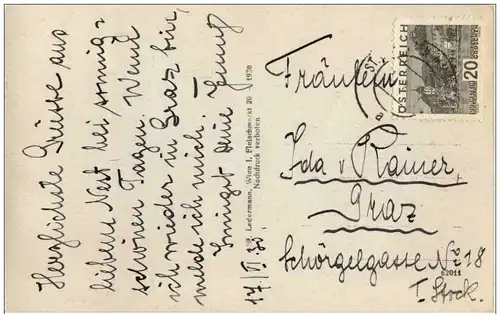 Herzlichste Grüsse aus
liebem Nest bei sonnig-
schönen Tagen. Wenn
ich wieder in Graz bin,
melde ich mich.
Innigst deine
17./II. 30.
P. Ledermann, Wien I. Fleischmarkt 20 1930
Nachdruck verboten
ÖSTERREICH
20 GROSCHEN
Fräulein
Ida v. Rainer,
Graz
Schörgelgasse No 18
62011
I. Stock.